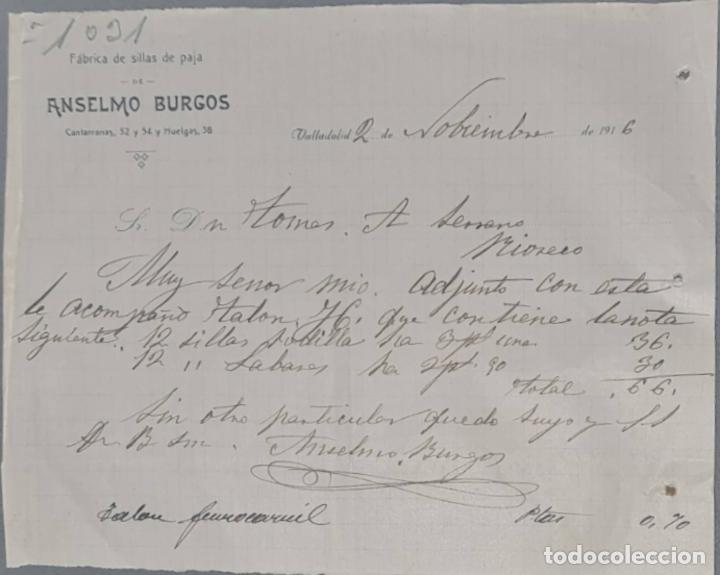 1031
Fábrica de sillas de paja
DE
ANSELMO BURGOS
Cantarranas, 52 y 54 y Huelgas, 38
Valladolid 2 de Nobiembre de 1916
Sr. Dn Tomas. A Serrano
Rioseco
Muy senor mio. adjunto con esta
le acompaño talon, que contiene lanota
siguiente. 12 sillas ha 3 pt una 36.
12 " ha 2 pt. 50 30
total . 66.
Sin otro particular quedo suyo y S S
B Sm. Anselmo Burgos
talon ferrocarril Ptas 0,70
todocoleccion